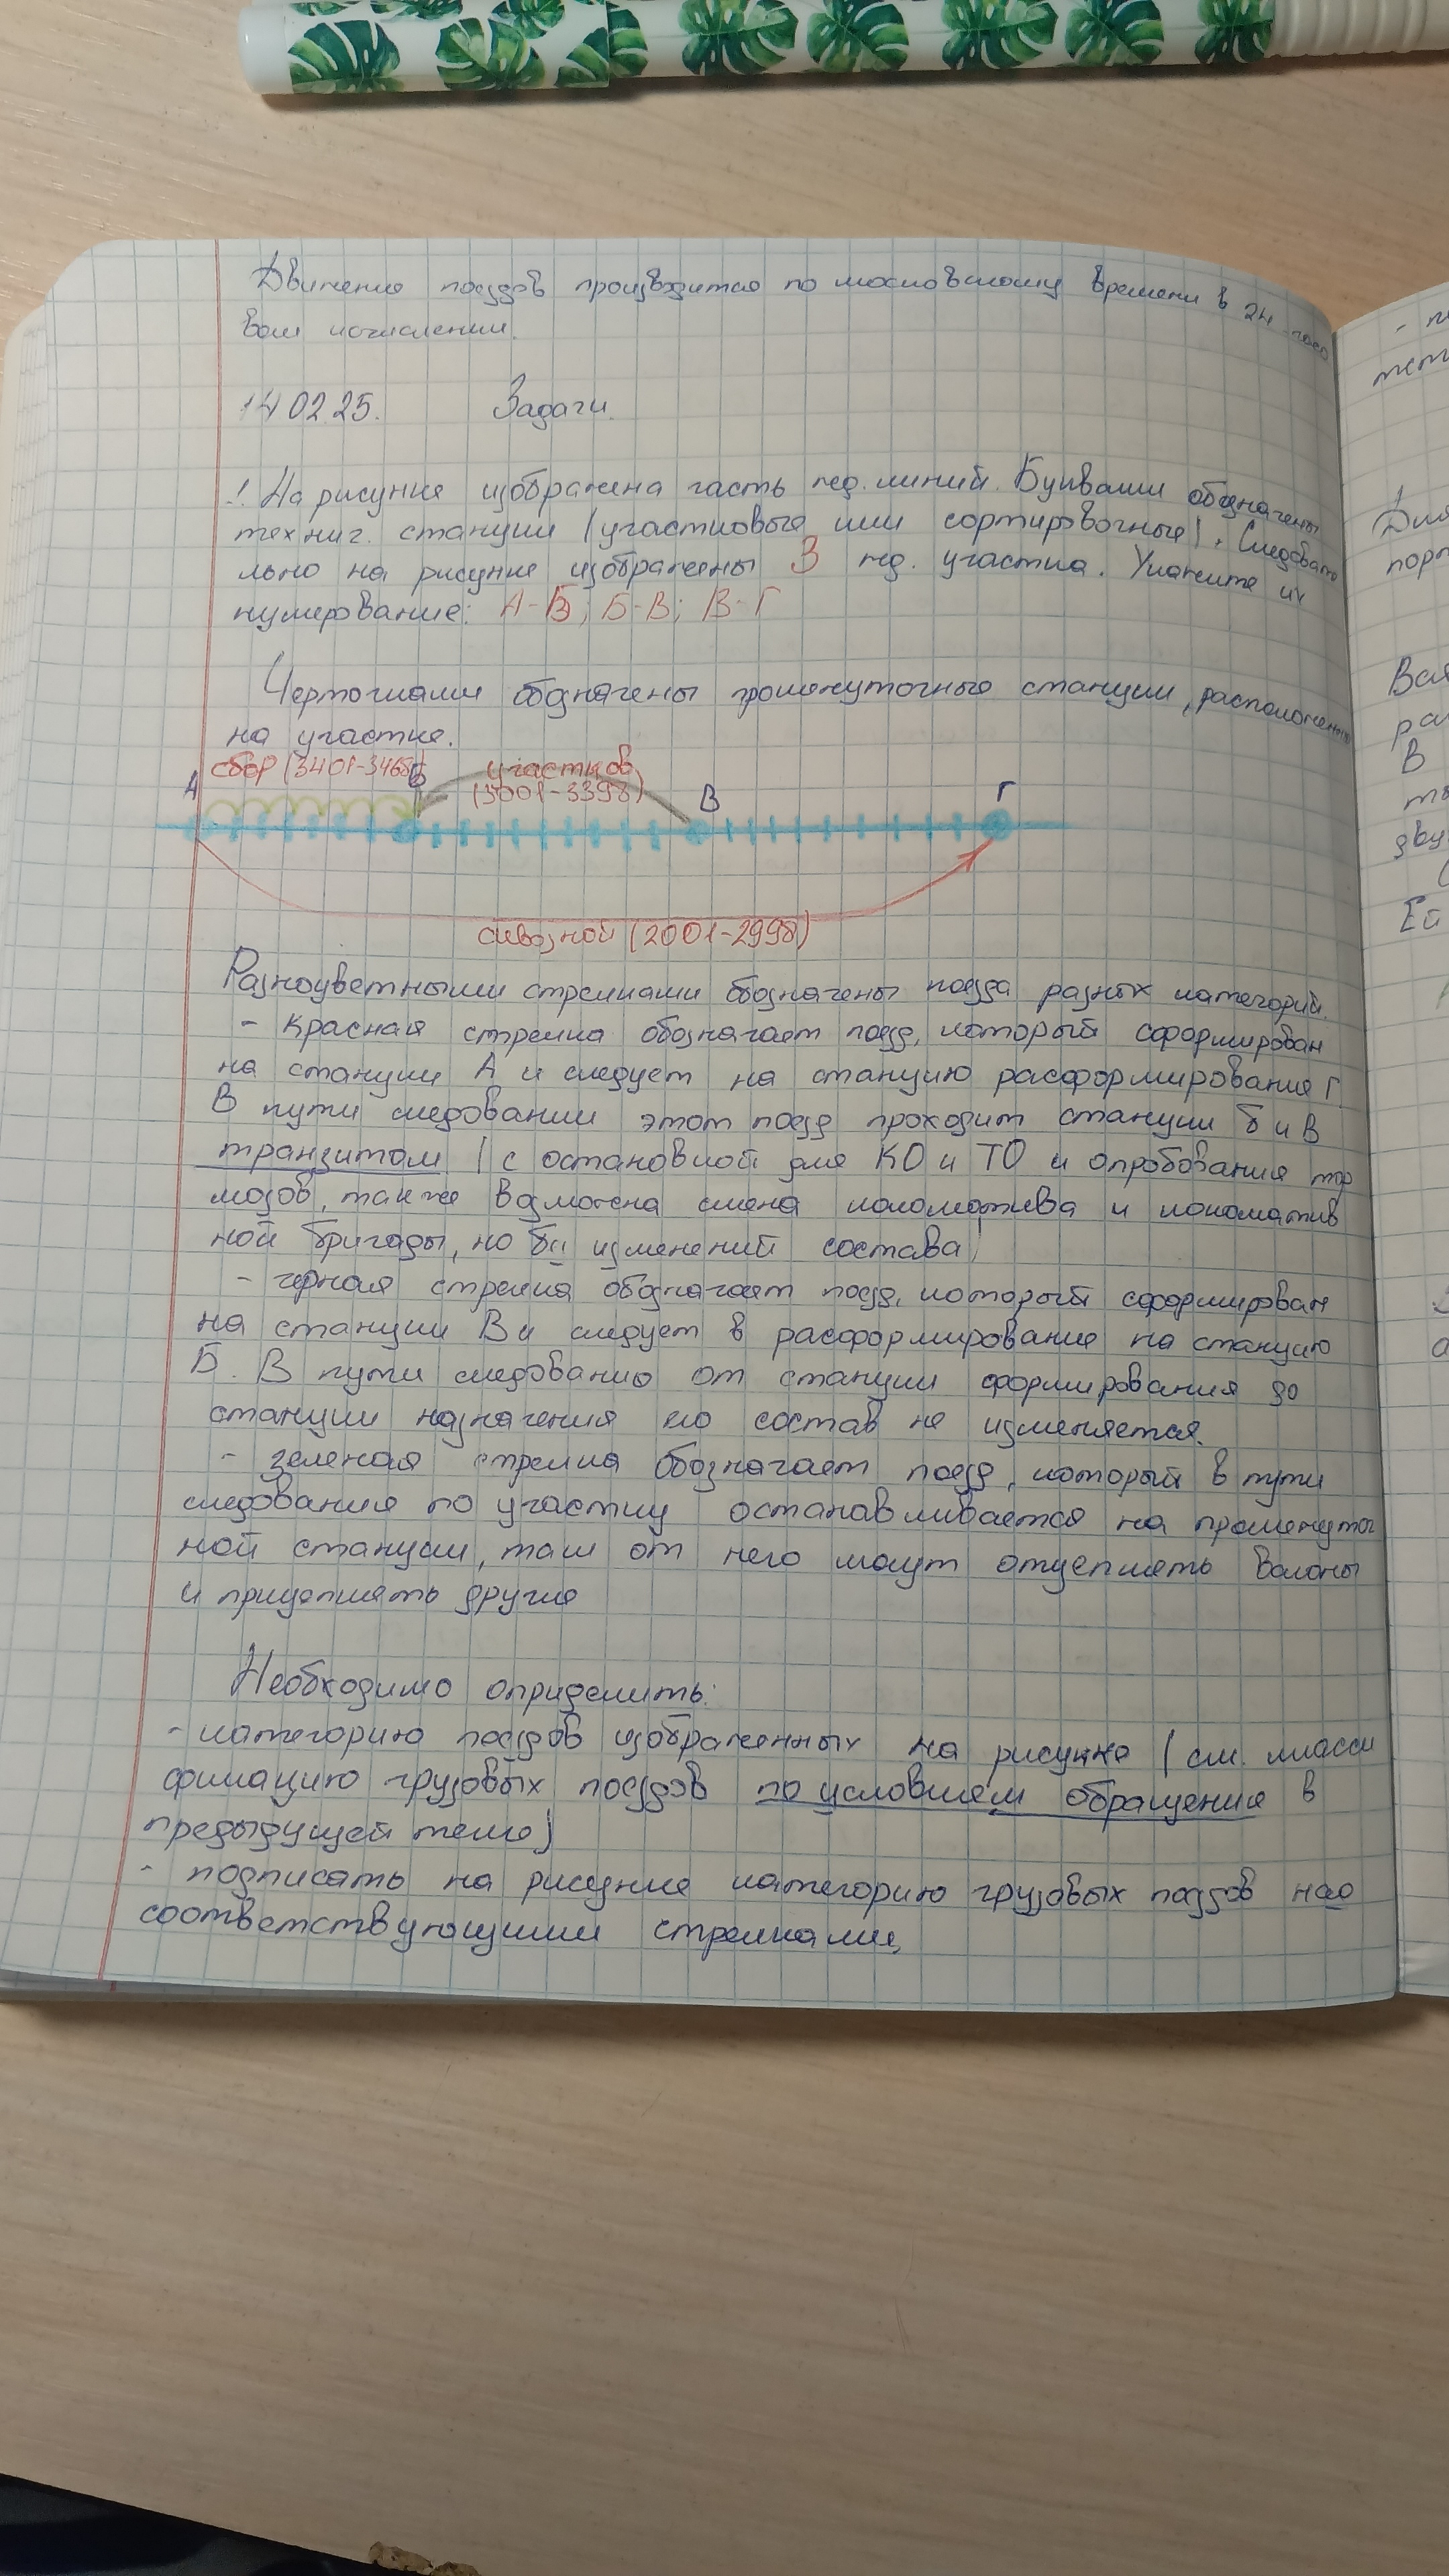 Движение поездов производится по московскому времени в 24-часо
вом исчислении.
14.02.25. Задачи.
! На рисунке изображена часть жд. линий. Буквами обозначены
технич. станции (участковые или сортировочные). Следовате
льно на рисунке изображены 3 жд. участка. Укажите их
нумерование: А-Б; Б-В; В-Г
Черточками обозначены промежуточные станции, расположенные
на участке.
сбор (3401-3468) участков
А Б (3001-3398) В Г
сквозной (2001-2998)
Разноцветными стрелками обозначены поезда разных категорий.
- красная стрелка обозначает поезд, который сформирован
на станции А и следует на станцию расформирования Г.
В пути следовании этот поезд проходит станции Б и В
транзитом (с остановкой для КО и ТО и опробования тор
мозов, также возможна смена локомотива и локоматив
ной бригады, но без изменений состава)
- черная стрелка обозначает поезд, который сформирован
на станции В и следует в расформирование на станцию
Б. В пути следованию от станции формирования до
станции назначения его состав не изменяется.
- зеленая стрелка обозначает поезд, который в пути
следования по участку останавливается на промежуточ
ной станции, там от него могут отцеплять вагоны
и прицеплять другие
Необходимо определить:
- категорию поездов изображенных на рисунке (см. класси
фикацию грузовых поездов по условием обращения в
предыдущей теме)
- подписать на рисунке категорию грузовых поездов над
соответствующими стрелками,
Ей